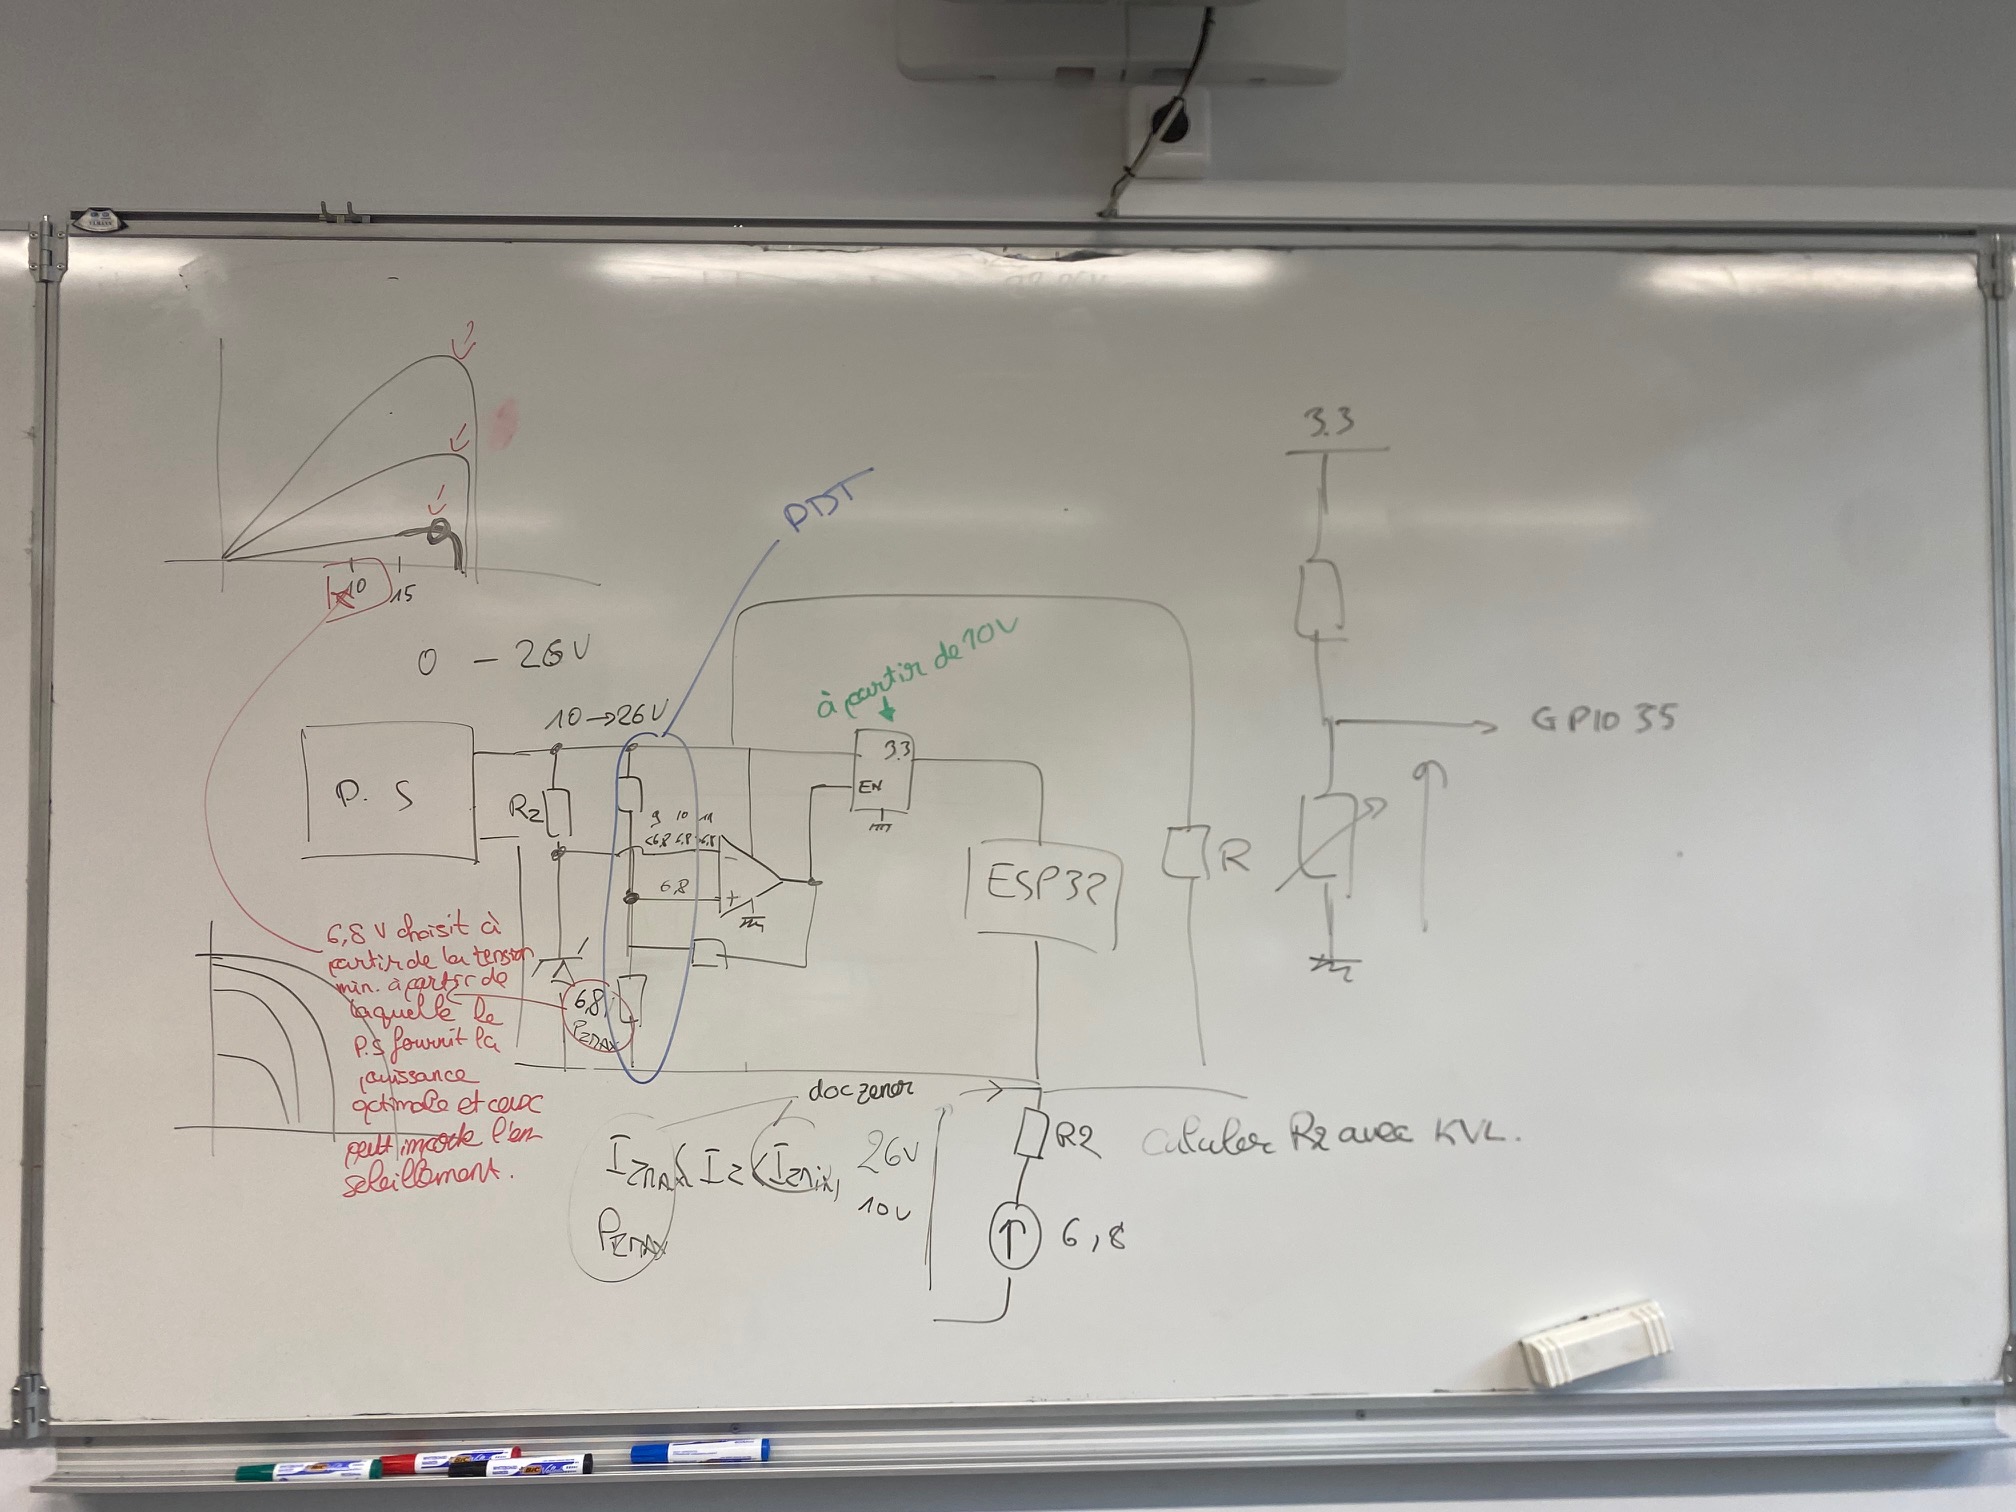 3.3
PDT
10
15
0 - 26V
à partir de 10V
10→26V
GPIO 35
P.S
Rz
3.3
EN
9 10 11
<6,8 6,8 >6,8
-
6,8
+
ESP32
R
6,8V choisit à
partir de la tension
min. à partir de
laquelle le
P.S fournit la
puissance
optimale et ceux
peut importe l'en
soleillement.
6,8
PZMAX
doc zener
IZMAX < IZ < IZMin,
26V
10V
PZMAX
R2
Calculer Rz avec KVL.
6,8